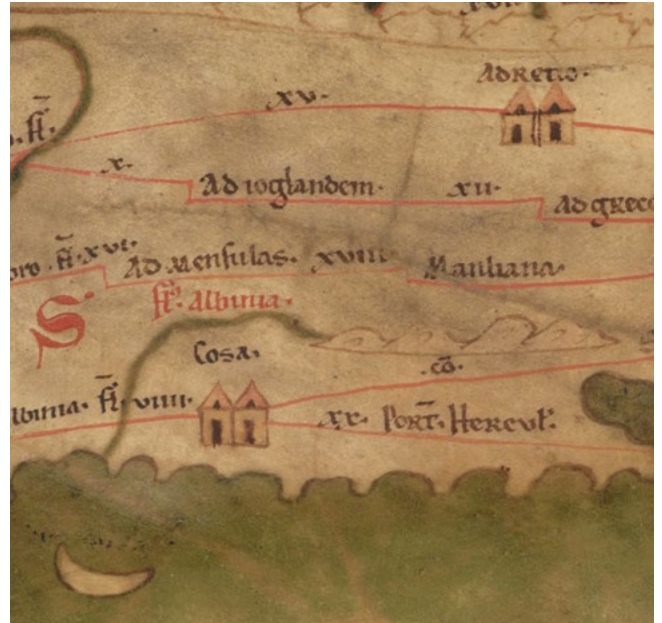 Adretio.
xv.
fl.
x.
Ad ioglandem.
xii.
Ad greco
oro. fl. xvi.
Ad Mensulas.
xviii
Manliana.
fl. Albinia.
S
Cosa.
co.
lbinia. fl. viiii.
xx. Port. Hercul.